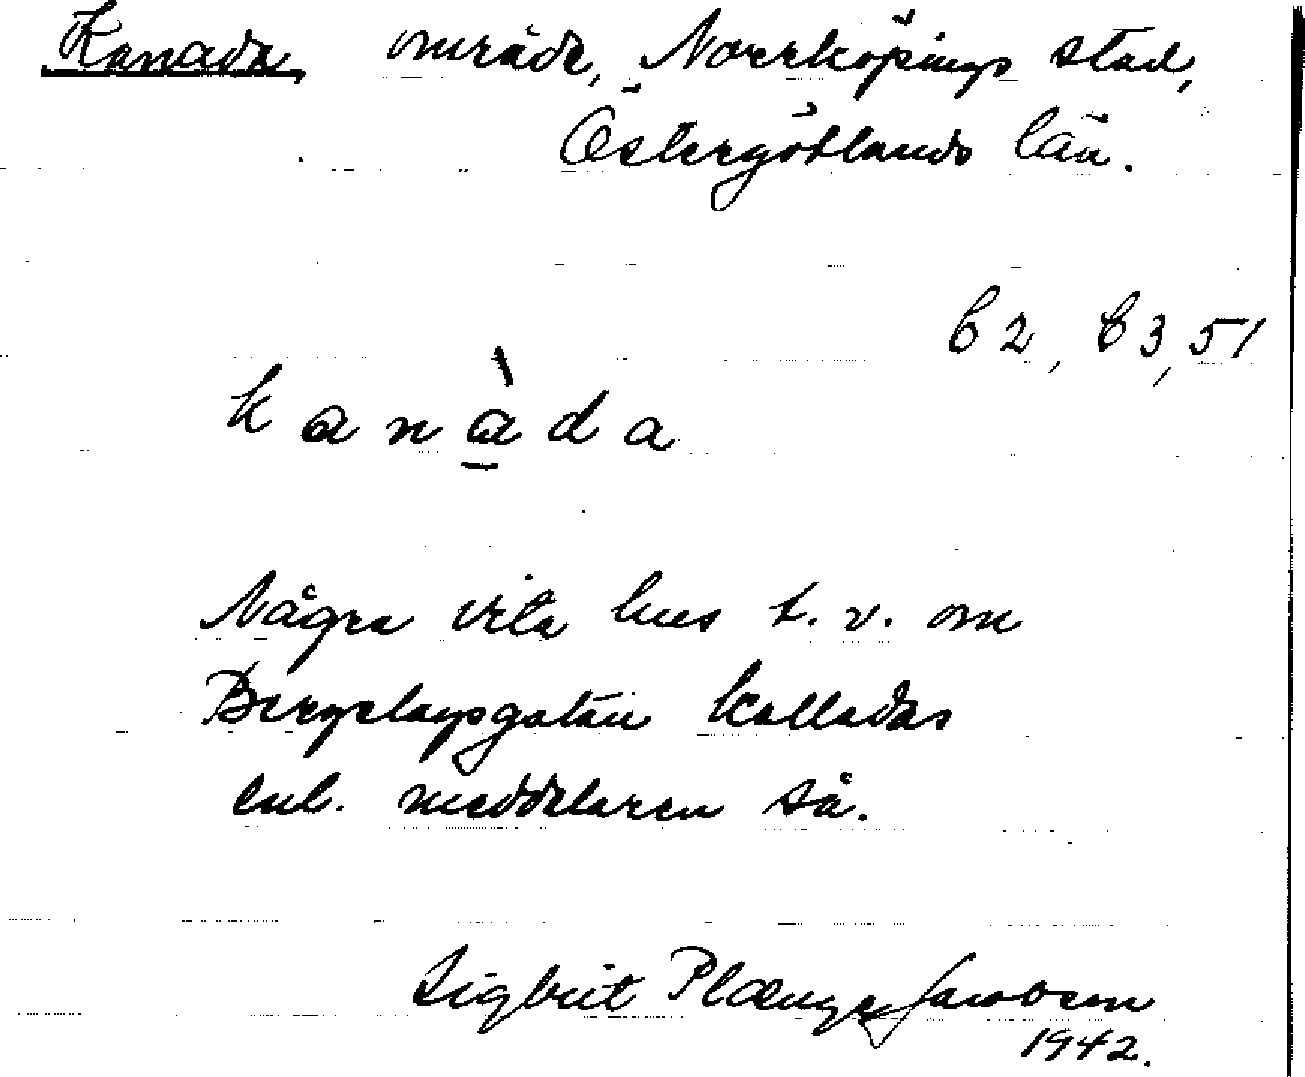 Kanada, område, Norrköpings stad,
Östergötlands län.
C2, C3,51
kanàda
Några vita hus t. v. om
Bergslagsgatan kallades
enl. meddelaren så.
Sigbrit Plænge Jacobson
1942.